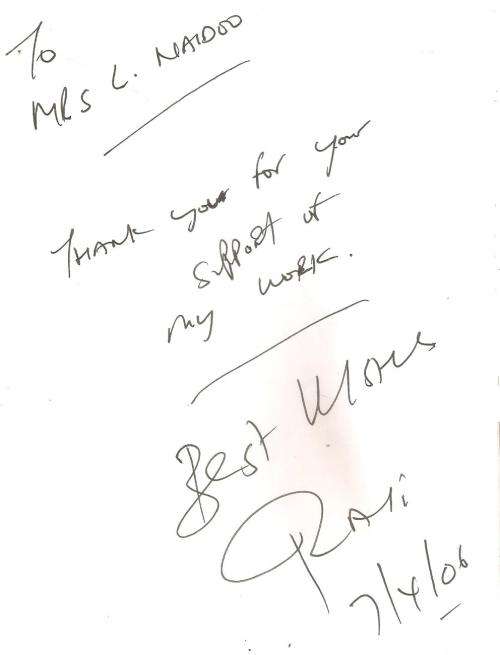 To
MRS L. NAIDOO
THANK you for your
support of
my work.
Best Wishes
Ravi
7/4/06